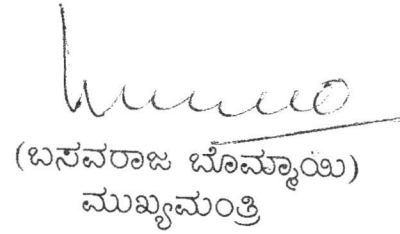 (ಬಸವರಾಜ ಬೊಮ್ಮಾಯಿ)
ಮುಖ್ಯಮಂತ್ರಿ